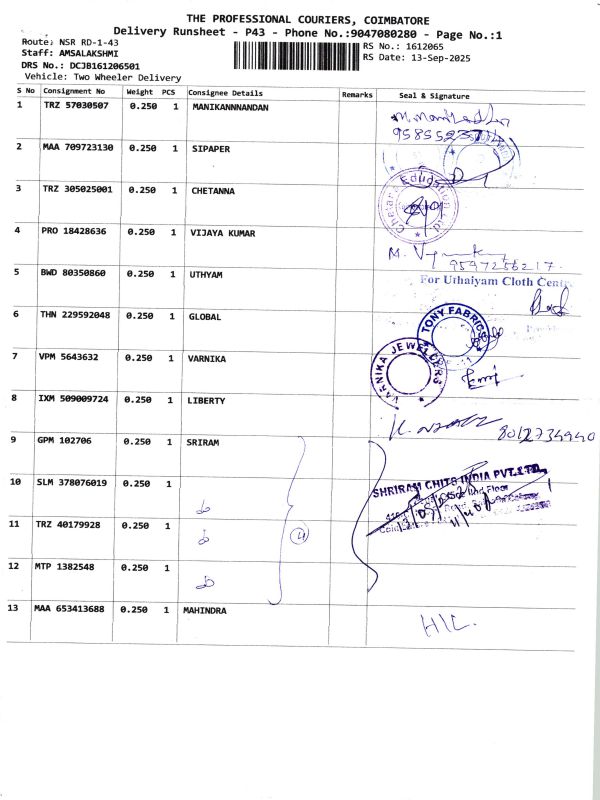 THE PROFESSIONAL COURIERS, COIMBATORE
Delivery Runsheet - P43 - Phone No.:9047080280 - Page No.:1
Route: NSR RD-1-43
RS No.: 1612065
Staff: AMSALAKSHMI
RS Date: 13-Sep-2025
DRS No.: DCJB161206501
Vehicle: Two Wheeler Delivery
S No Consignment No Weight PCS Consignee Details Remarks Seal & Signature
1 TRZ 57030507 0.250 1 MANIKANNNANDAN
2 MAA 709723130 0.250 1 SIPAPER
3 TRZ 305025001 0.250 1 CHETANNA
4 PRO 18428636 0.250 1 VIJAYA KUMAR
9597256217
5 BWD 80350860 0.250 1 UTHYAM For Uthaiyam Cloth Centre
6 THN 229592048 0.250 1 GLOBAL TONY FABRICS
7 VPM 5643632 0.250 1 VARNIKA VARNIKA JEWELLERS
8 IXM 509009724 0.250 1 LIBERTY 8012734940
9 GPM 102706 0.250 1 SRIRAM
10 SLM 378076019 0.250 1 SHRIRAM CHITS INDIA PVT.LTD,
11 TRZ 40179928 0.250 1 (4)
12 MTP 1382548 0.250 1
13 MAA 653413688 0.250 1 MAHINDRA H/C